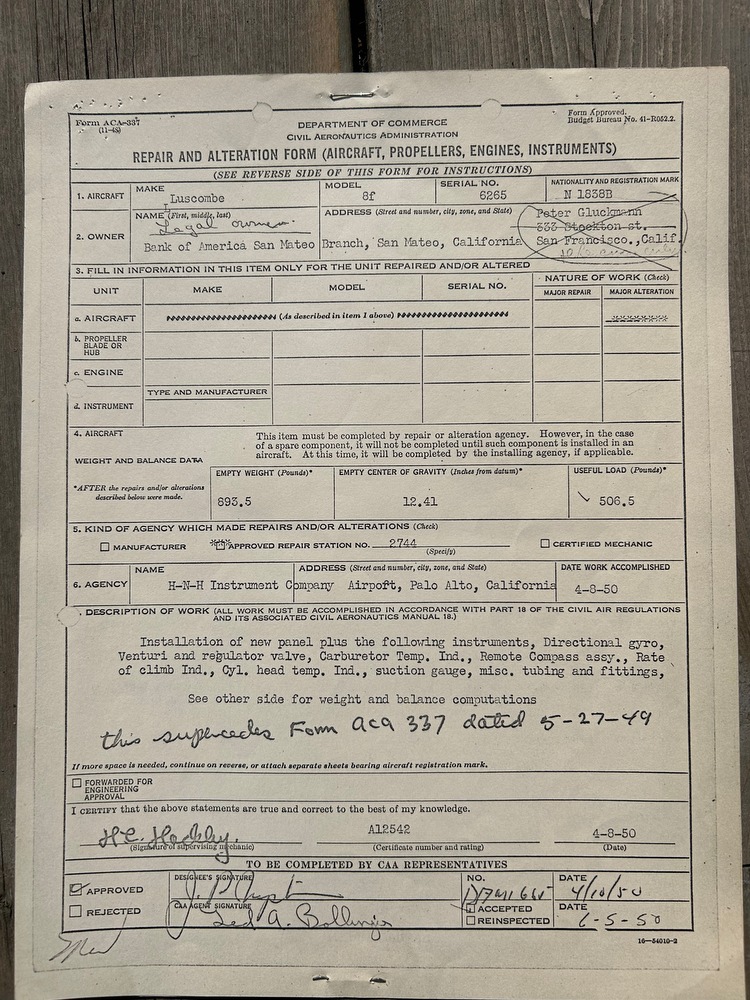 Form ACA-337
(11-48)
Form Approved.
Budget Bureau No. 41-R052.2.
DEPARTMENT OF COMMERCE
CIVIL AERONAUTICS ADMINISTRATION
REPAIR AND ALTERATION FORM (AIRCRAFT, PROPELLERS, ENGINES, INSTRUMENTS)
(SEE REVERSE SIDE OF THIS FORM FOR INSTRUCTIONS)
1. AIRCRAFT
MAKE
Luscombe
MODEL
8f
SERIAL NO.
6265
NATIONALITY AND REGISTRATION MARK
N 1838B
2. OWNER
NAME (First, middle, last)
Legal owner
Bank of America San Mateo Branch, San Mateo, California
ADDRESS (Street and number, city, zone, and State)
Peter Gluckmann
333 Stockton st.
San Francisco.,Calif.
3. FILL IN INFORMATION IN THIS ITEM ONLY FOR THE UNIT REPAIRED AND/OR ALTERED
UNIT
MAKE
MODEL
SERIAL NO.
NATURE OF WORK (Check)
MAJOR REPAIR
MAJOR ALTERATION
a. AIRCRAFT
(As described in item 1 above)
b. PROPELLER
BLADE OR
HUB
c. ENGINE
d. INSTRUMENT
TYPE AND MANUFACTURER
4. AIRCRAFT
WEIGHT AND BALANCE DATA
This item must be completed by repair or alteration agency. However, in the case
of a spare component, it will not be completed until such component is installed in an
aircraft. At this time, it will be completed by the installing agency, if applicable.
*AFTER the repairs and/or alterations
described below were made.
EMPTY WEIGHT (Pounds)*
893.5
EMPTY CENTER OF GRAVITY (Inches from datum)*
12.41
USEFUL LOAD (Pounds)*
506.5
5. KIND OF AGENCY WHICH MADE REPAIRS AND/OR ALTERATIONS (Check)
MANUFACTURER
APPROVED REPAIR STATION NO. 2744
(Specify)
CERTIFIED MECHANIC
6. AGENCY
NAME
H-N-H Instrument Company
ADDRESS (Street and number, city, zone, and State)
Airpoft, Palo Alto, California
DATE WORK ACCOMPLISHED
4-8-50
. DESCRIPTION OF WORK (ALL WORK MUST BE ACCOMPLISHED IN ACCORDANCE WITH PART 18 OF THE CIVIL AIR REGULATIONS
AND ITS ASSOCIATED CIVIL AERONAUTICS MANUAL 18.)
Installation of new panel plus the following instruments, Directional gyro,
Venturi and regulator valve, Carburetor Temp. Ind., Remote Compass assy., Rate
of climb Ind., Cyl. head temp. Ind., suction gauge, misc. tubing and fittings,
See other side for weight and balance computations
this supercedes Form aca 337 dated 5-27-49
If more space is needed, continue on reverse, or attach separate sheets bearing aircraft registration mark.
FORWARDED FOR
ENGINEERING
APPROVAL
I CERTIFY that the above statements are true and correct to the best of my knowledge.
A12542
4-8-50
(Signature of supervising mechanic)
(Certificate number and rating)
(Date)
TO BE COMPLETED BY CAA REPRESENTATIVES
APPROVED
REJECTED
DESIGNEE'S SIGNATURE
NO.
DATE
4/10/50
CAA AGENT SIGNATURE
Ted A. Bollinger
ACCEPTED
REINSPECTED
DATE
6-5-50
16—54010-2